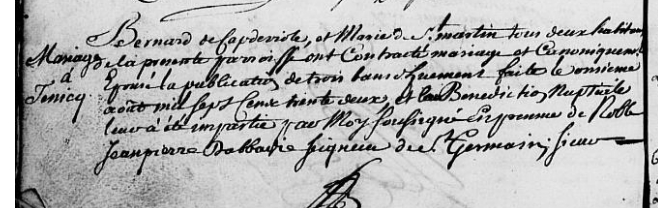 Bernard de Capdeviole, et Marie de St martin tous deux habitans
Mariage de la presente parroisse ont Contracté mariage et Canoniquement
à Epousé la publication de trois bans duement faite le onsieme
aoust mil sept cens trente deux et la Benediction Nuptiale
leur à été impartie par Moy soussigné En presence de Noble
Jeanpierre Dabbadie seigneur de St Germain, sieur